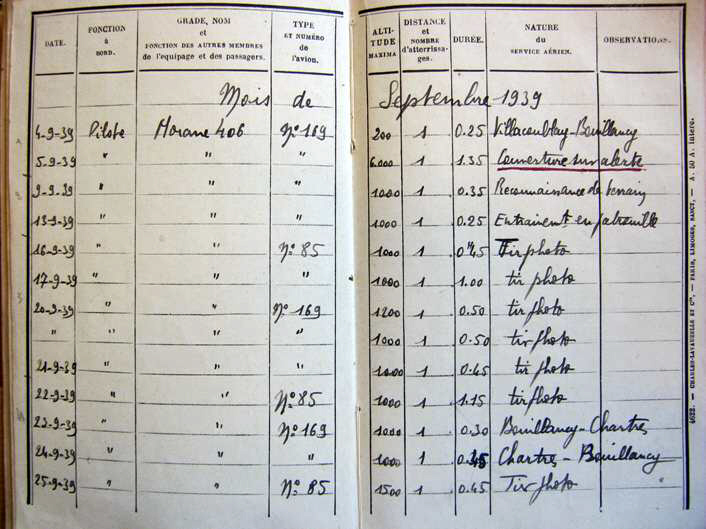 DATE. FONCTION à BORD. GRADE, NOM et FONCTION DES AUTRES MEMBRES de l'équipage et des passagers. TYPE ET NUMÉRO de l'avion. ALTITUDE MAXIMA DISTANCE et NOMBRE d'atterrissages. DURÉE. NATURE du SERVICE AÉRIEN. OBSERVATIONS.
Mois de Septembre 1939
4-9-39 Pilote Morane 406 N° 169 200 1 0.25 Villacoublay-Bouillancy
5-9-39 " " " 6.000 1 1.35 Couverture sur alerte
9-9-39 " " " 1000 1 0.35 Reconnaissance de terrain
13-9-39 " " " 1000 1 0.25 Entrainemt en patrouille
16-9-39 " " N° 85 1000 1 0h45 Tir photo
17-9-39 " " " 1000 1 1.00 tir photo
20-9-39 " " N° 169 1200 1 0.50 tir photo
" " " " 1000 1 0.50 tir photo
21-9-39 " " " 1000 1 0.45 tir photo
22-9-39 " " N° 85 1000 1 1.15 tir photo
23-9-39 " " N° 169 1000 1 0.30 Bouillancy-Chartres
24-9-39 " " " 1000 1 0.45 Chartres-Bouillancy
25-9-39 " " N° 85 1500 1 0.45 Tir photo "
4622. — CHARLES-LAVAUZELLE ET Cie. — PARIS, LIMOGES, NANCY. — A. 50 A. intérc.